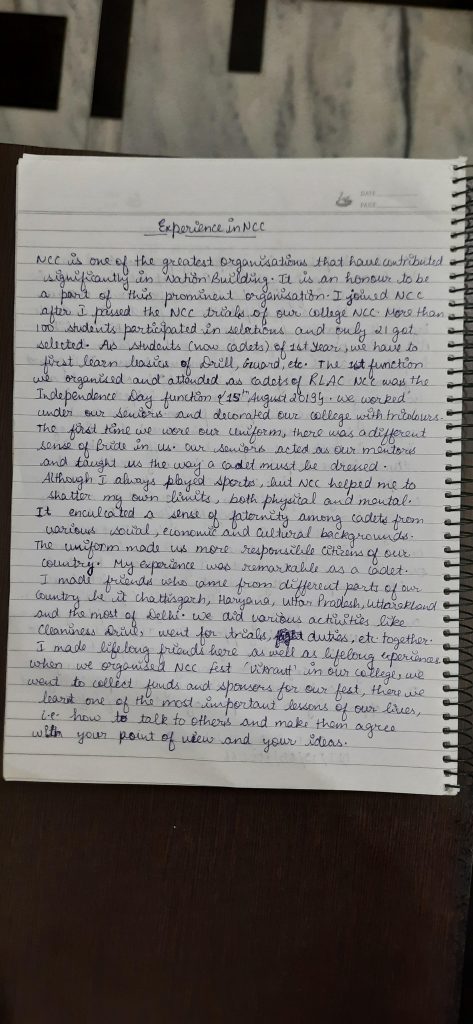 DATE
PAGE
Experience in NCC
NCC is one of the greatest organisations that have contributed
significantly in Nation Building. It is an honour to be
a part of this prominent organisation. I joined NCC
after I passed the NCC trials of our college NCC. More than
100 students participated in selections and only 21 got
selected. As students (now cadets) of 1st Year, we have to
first learn basics of Drill, Guard, etc. The 1st function
we organised and attended as cadets of RLAC NCC was the
Independence Day function (15th August 2019). We worked
under our seniors and decorated our college with tricolours.
The first time we wore our uniform, there was a different
sense of Pride in us. Our seniors acted as our mentors
and taught us the way a cadet must be dressed.
Although I always played sports, but NCC helped me to
shatter my own limits, both physical and mental.
It enculcated a sense of faternity among cadets from
various social, economic and cultural backgrounds.
The uniform made us more responsible citizens of our
country. My experience was remarkable as a cadet.
I made friends who came from different parts of our
Country be it Chattisgarh, Haryana, Uttar Pradesh, Uttarakhand
and the most of Delhi. We did various activities like
Cleaniness Drive, went for trials, duties, etc together.
I made lifelong friends here as well as lifelong experiences
when we organised NCC fest 'Vikrant' in our college, we
went to collect funds and sponsors for our fest, there we
learnt one of the most important lessons of our lives,
i.e. how to talk to others and make them agree
with your point of view and your ideas.